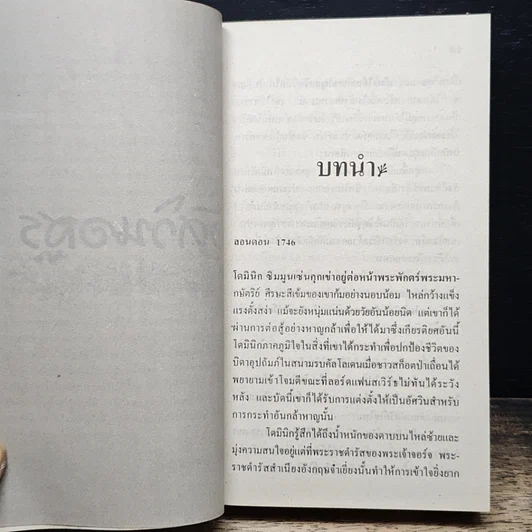 บทนำ
ลอนดอน 1746
โดมินิก ซิมมุนเซ่นคุกเข่าอยู่ต่อหน้าพระพักตร์พระมหา-
กษัตริย์ ศีรษะสีเข้มของเขาก้มอย่างนอบน้อม ไหล่กว้างแข็ง
แรงตั้งสง่า แม้จะยังหนุ่มแน่นด้วยวัยอันน้อยนิด แต่เขาก็ได้
ผ่านการต่อสู้อย่างหาญกล้าเพื่อให้ได้มาซึ่งเกียรติยศอันนี้
โดมินิกภาคภูมิใจในสิ่งที่เขาได้กระทำเพื่อปกป้องชีวิตของ
บิดาอุปถัมภ์ในสนามรบคัลโลเดนเมื่อชาวสก็อตป่าเถื่อนได้
พยายามเข้าโจมตีขณะที่ลอร์ดแฟนสเวิร์ธไม่ทันได้ระวัง
หลัง และบัดนี้เขาก็ได้รับการแต่งตั้งให้เป็นอัศวินสำหรับ
การกระทำอันกล้าหาญนั้น
โดมินิกรู้สึกได้ถึงน้ำหนักของดาบบนไหล่ซ้ายและ
มุ่งความสนใจอยู่แต่ที่พระราชดำรัสของพระเจ้าจอร์จ พระ-
ราชดำรัสสำเนียงอังกฤษจ๋าเยี่ยงนั้นทำให้การเข้าใจยิ่งยาก